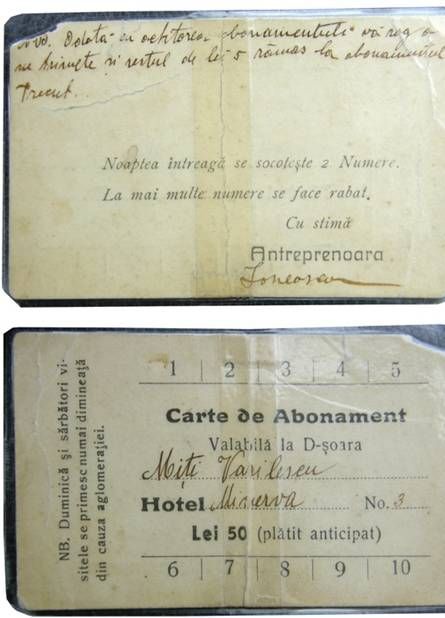 Odată cu achitarea abonamentului vă rog a
trimește și restul de lei 5 rămas la abonamentul
trecut.
Noaptea întreagă se socotește 2 Numere.
La mai multe numere se face rabat.
Cu stimă
Antreprenoara
Ionescu
NB. Duminică și sărbători vi-
sitele se primesc numai dimineață
din cauza aglomerației.
1 | 2 | 3 | 4 | 5
Carte de Abonament
Valabilă la D-șoara
Miți Vasilescu
Hotel Minerva No. 3
Lei 50 (plătit anticipat)
6 | 7 | 8 | 9 | 10